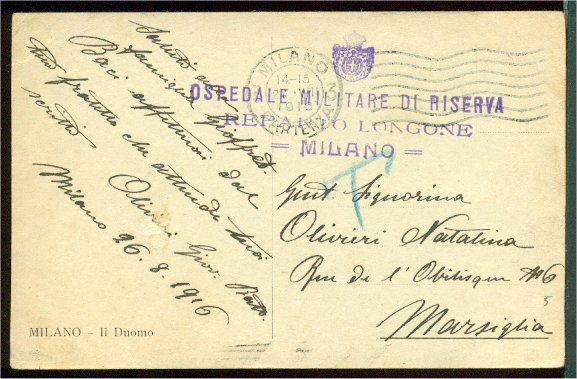 Saluti alla
famiglia
Baci affettuosi dal
tuo fratello che attende tuoi
scritti
Olivieri Giov. Batt.
Milano 26.8.1916
MILANO – Il Duomo
MILANO
14-15
PARTENZA
OSPEDALE MILITARE DI RISERVA
REPARTO LONGONE
= MILANO =
T
Gent Signorina
Olivieri Natalina
Rue de l'Obilisque No 6
5
Marsiglia